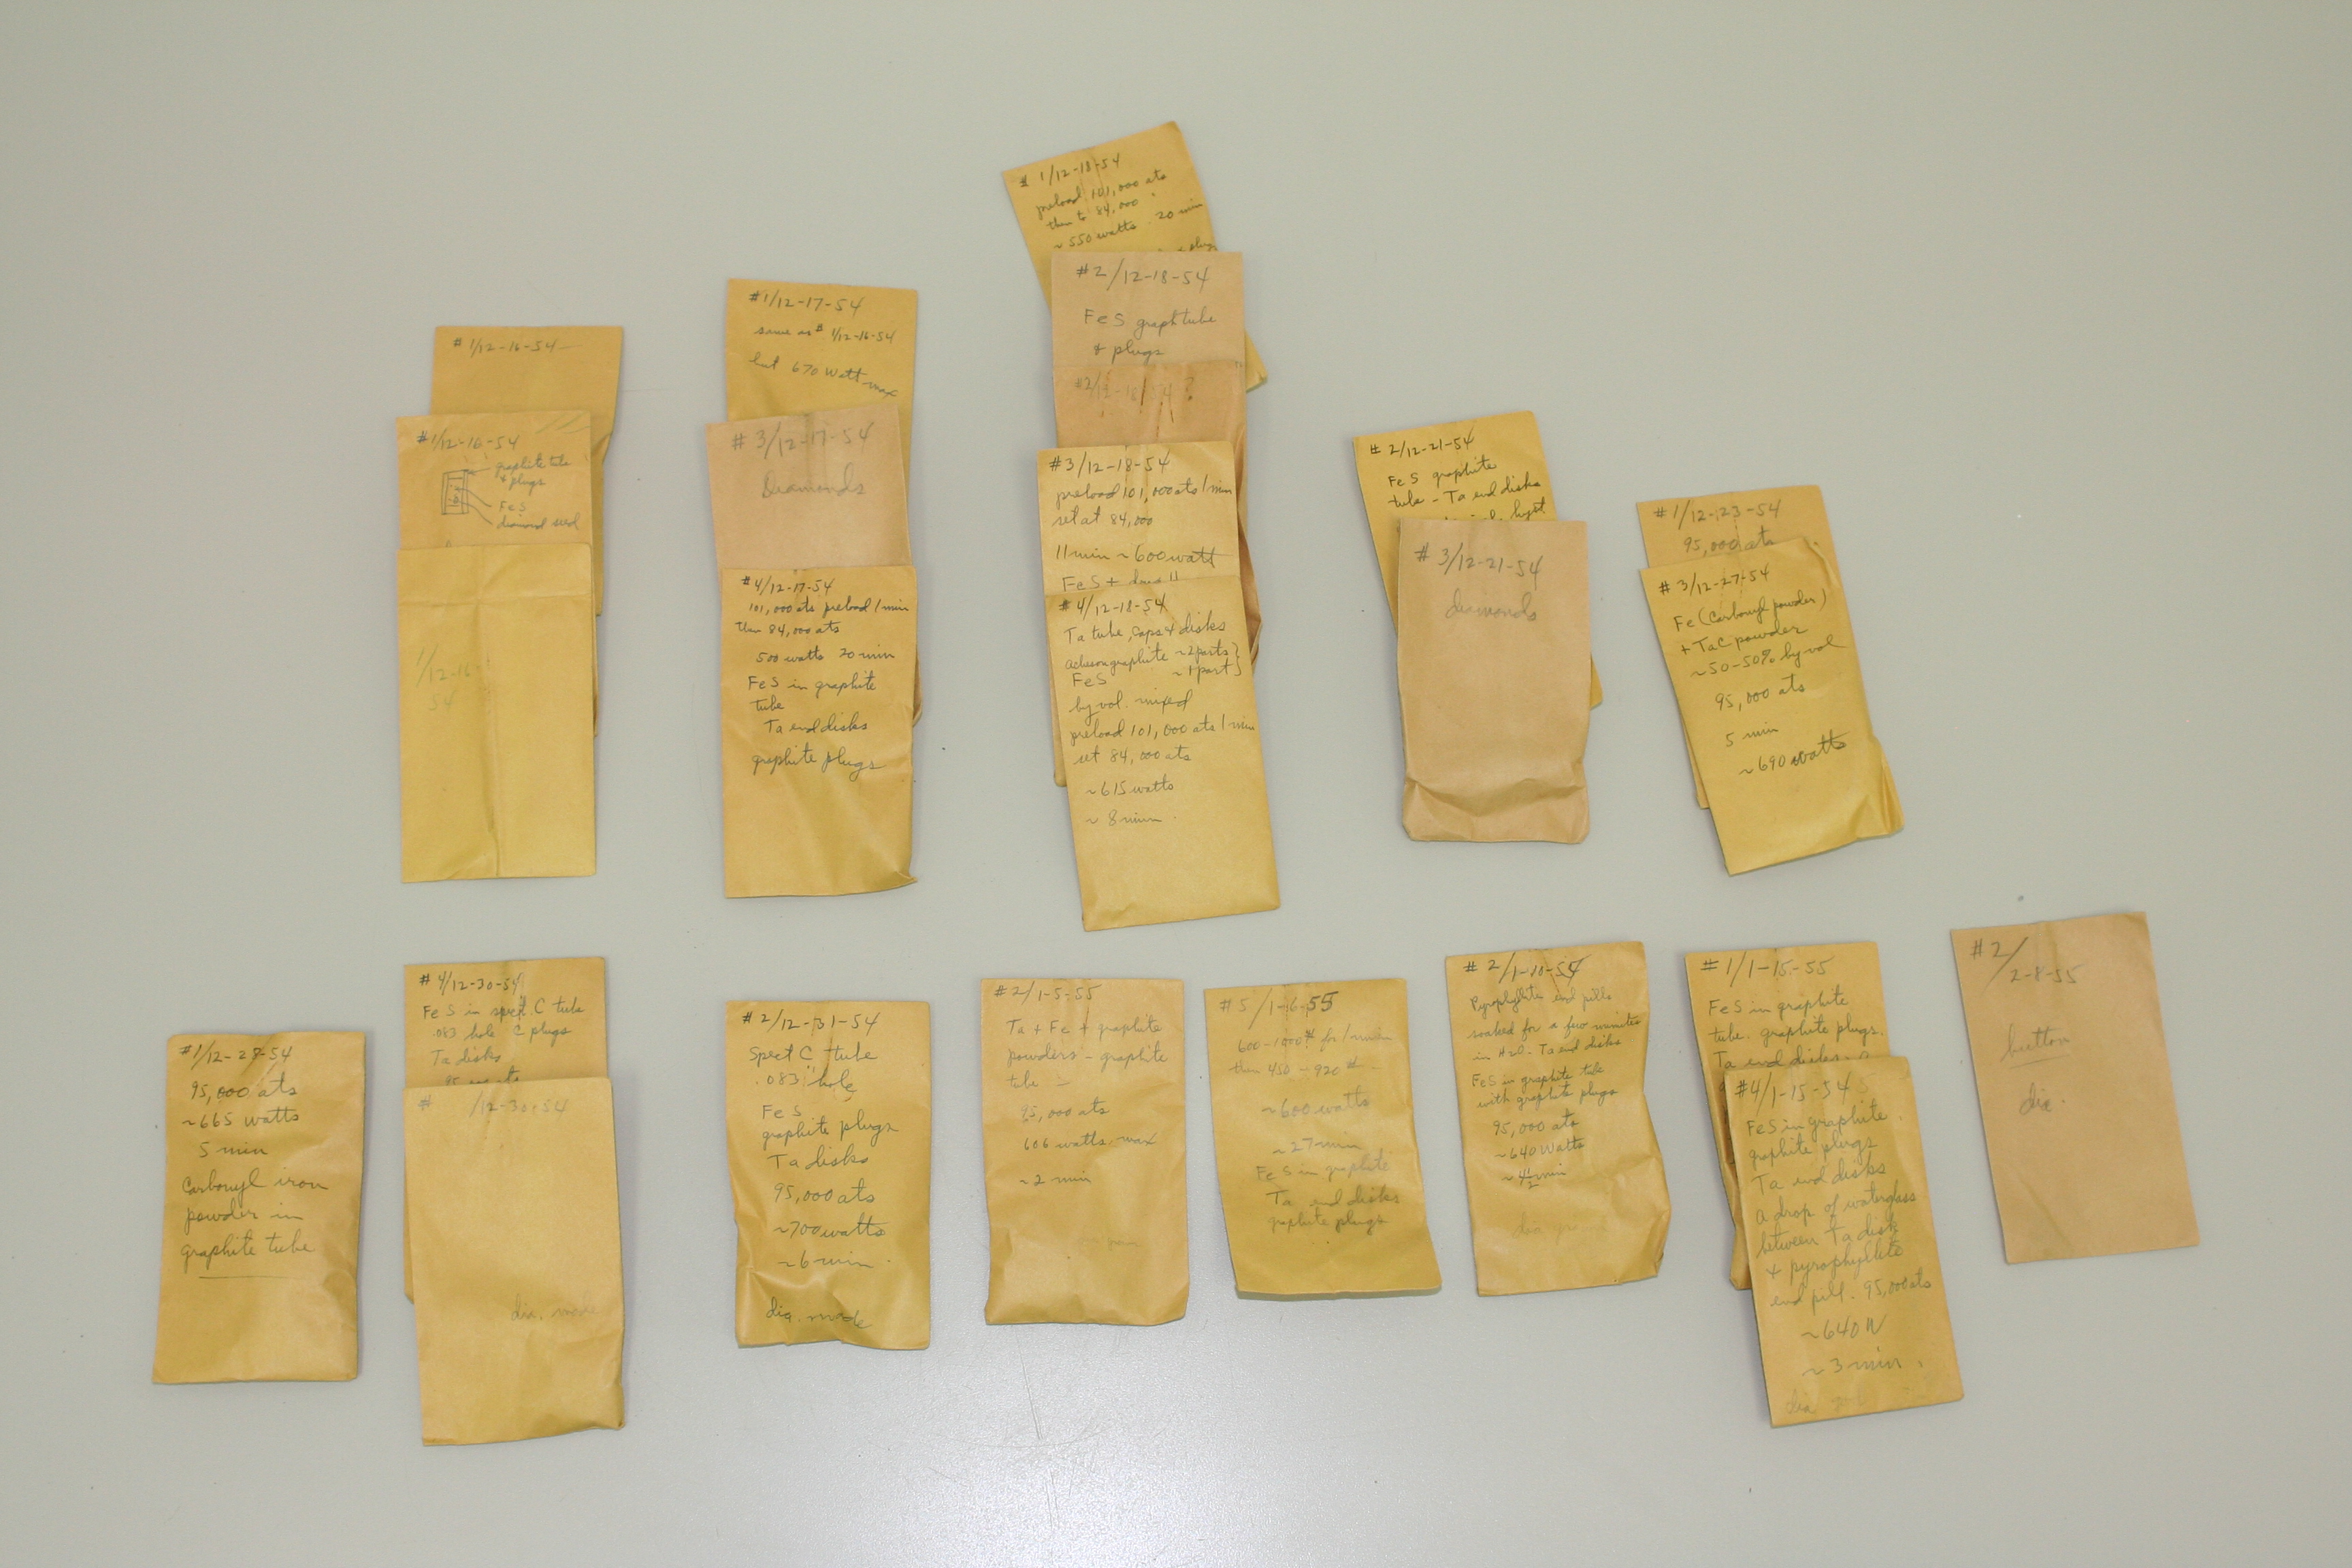 # 1/12-16-54
#1/12-16-54
graphite tube
& plugs
FeS
diamond seed
1/12-16-
54
#1/12-17-54
same as # 1/12-16-54
but 670 Watt max
# 3/12-17-54
Diamonds
#4/12-17-54
101,000 ats preload 1 min
then 84,000 ats
500 watts 20 min
FeS in graphite
tube
Ta end disks
graphite plugs
# 1/12-18-54
preload 101,000 ats
then to 84,000
~ 550 watts 20 min
& plugs
#2/12-18-54
FeS graph tube
& plugs
#2/12-18/54?
#3/12-18-54
preload 101,000 ats 1 min
set at 84,000
11 min ~600 watt
FeS +
#4/12-18-54
Ta tube, caps & disks
acheson graphite ~2 parts}
FeS ~1 part}
by vol. mixed
preload 101,000 ats 1 min
set 84,000 ats
~615 watts
~ 8 min.
# 2/12-21-54
FeS graphite
tube - Ta end disks
# 3/12-21-54
diamonds
#1/12-23-54
95,000 ats
# 3/12-27-54
Fe (Carbonyl powder)
+ TaC powder
~50-50% by vol
95,000 ats
5 min
~690 watts
#1/12-28-54
95,000 ats
~665 watts
5 min
Carbonyl iron
powder in
graphite tube
# 4/12-30-54
FeS in spect. C tube
.083 hole C plugs
Ta disks
# /12-30-54
dia. made
#2/12-31-54
Spect C tube
.083" hole
FeS
graphite plugs
Ta disks
95,000 ats
~700 watts
~6 min.
dia. made
#2/1-5-55
Ta + Fe + graphite
powders - graphite
tube -
95,000 ats
606 watts max
~2 min
#5/1-6-55
600-1000# for 1 min
then 450-920#
~600 watts
~27 min
FeS in graphite
Ta end disks
graphite plugs
# 2/1-10-55
Pyrophyllite end pills
soaked for a few minutes
in H2O - Ta end disks
FeS in graphite tube
with graphite plugs
95,000 ats
~640 Watts
~4½ min
#1/1-15-55
FeS in graphite
tube. graphite plugs.
Ta end disks.
#4/1-15-54
FeS in graphite.
graphite plugs
Ta end disks
a drop of waterglass
between Ta disk
& pyrophyllite
end pill. 95,000 ats
~640 W
~3 min.
dia
#2/
2-8-55
button
dia.